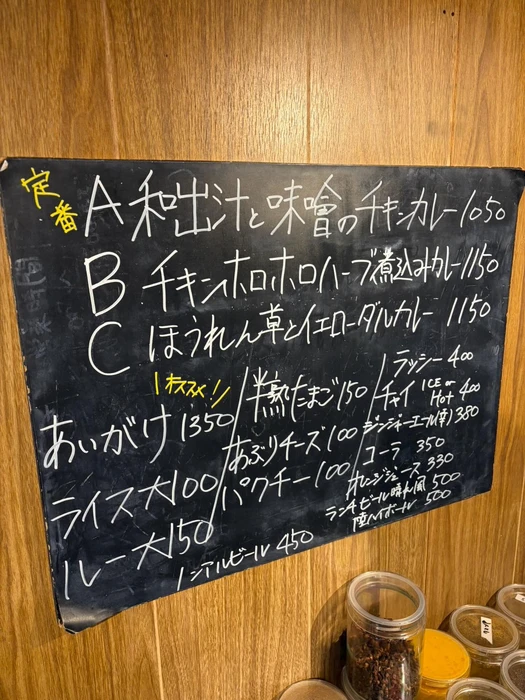 定番
A 和出汁と味噌のチキンカレー 1050
B チキンホロホロハーブ煮込みカレー 1150
C ほうれん草とイエローダルカレー 1150
\オススメ!/
あいがけ 1350
ライス大 100
ルー大 150
半熟たまご 150
あぶりチーズ 100
パクチー 100
ラッシー 400
チャイ ICE or Hot 400
ジンジャーエール(辛) 380
コーラ 350
オレンジジュース 330
ランチビール晴れ風 500
陸ハイボール 500
ノンアルビール 450